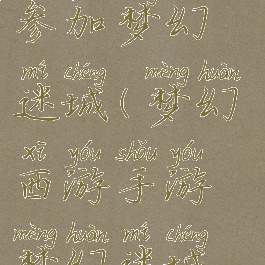 参加梦幻
mí chéng mèng huàn
迷城（梦幻
xī yóu shǒu yóu
西游手游
mèng huàn mí chéng
梦幻迷城